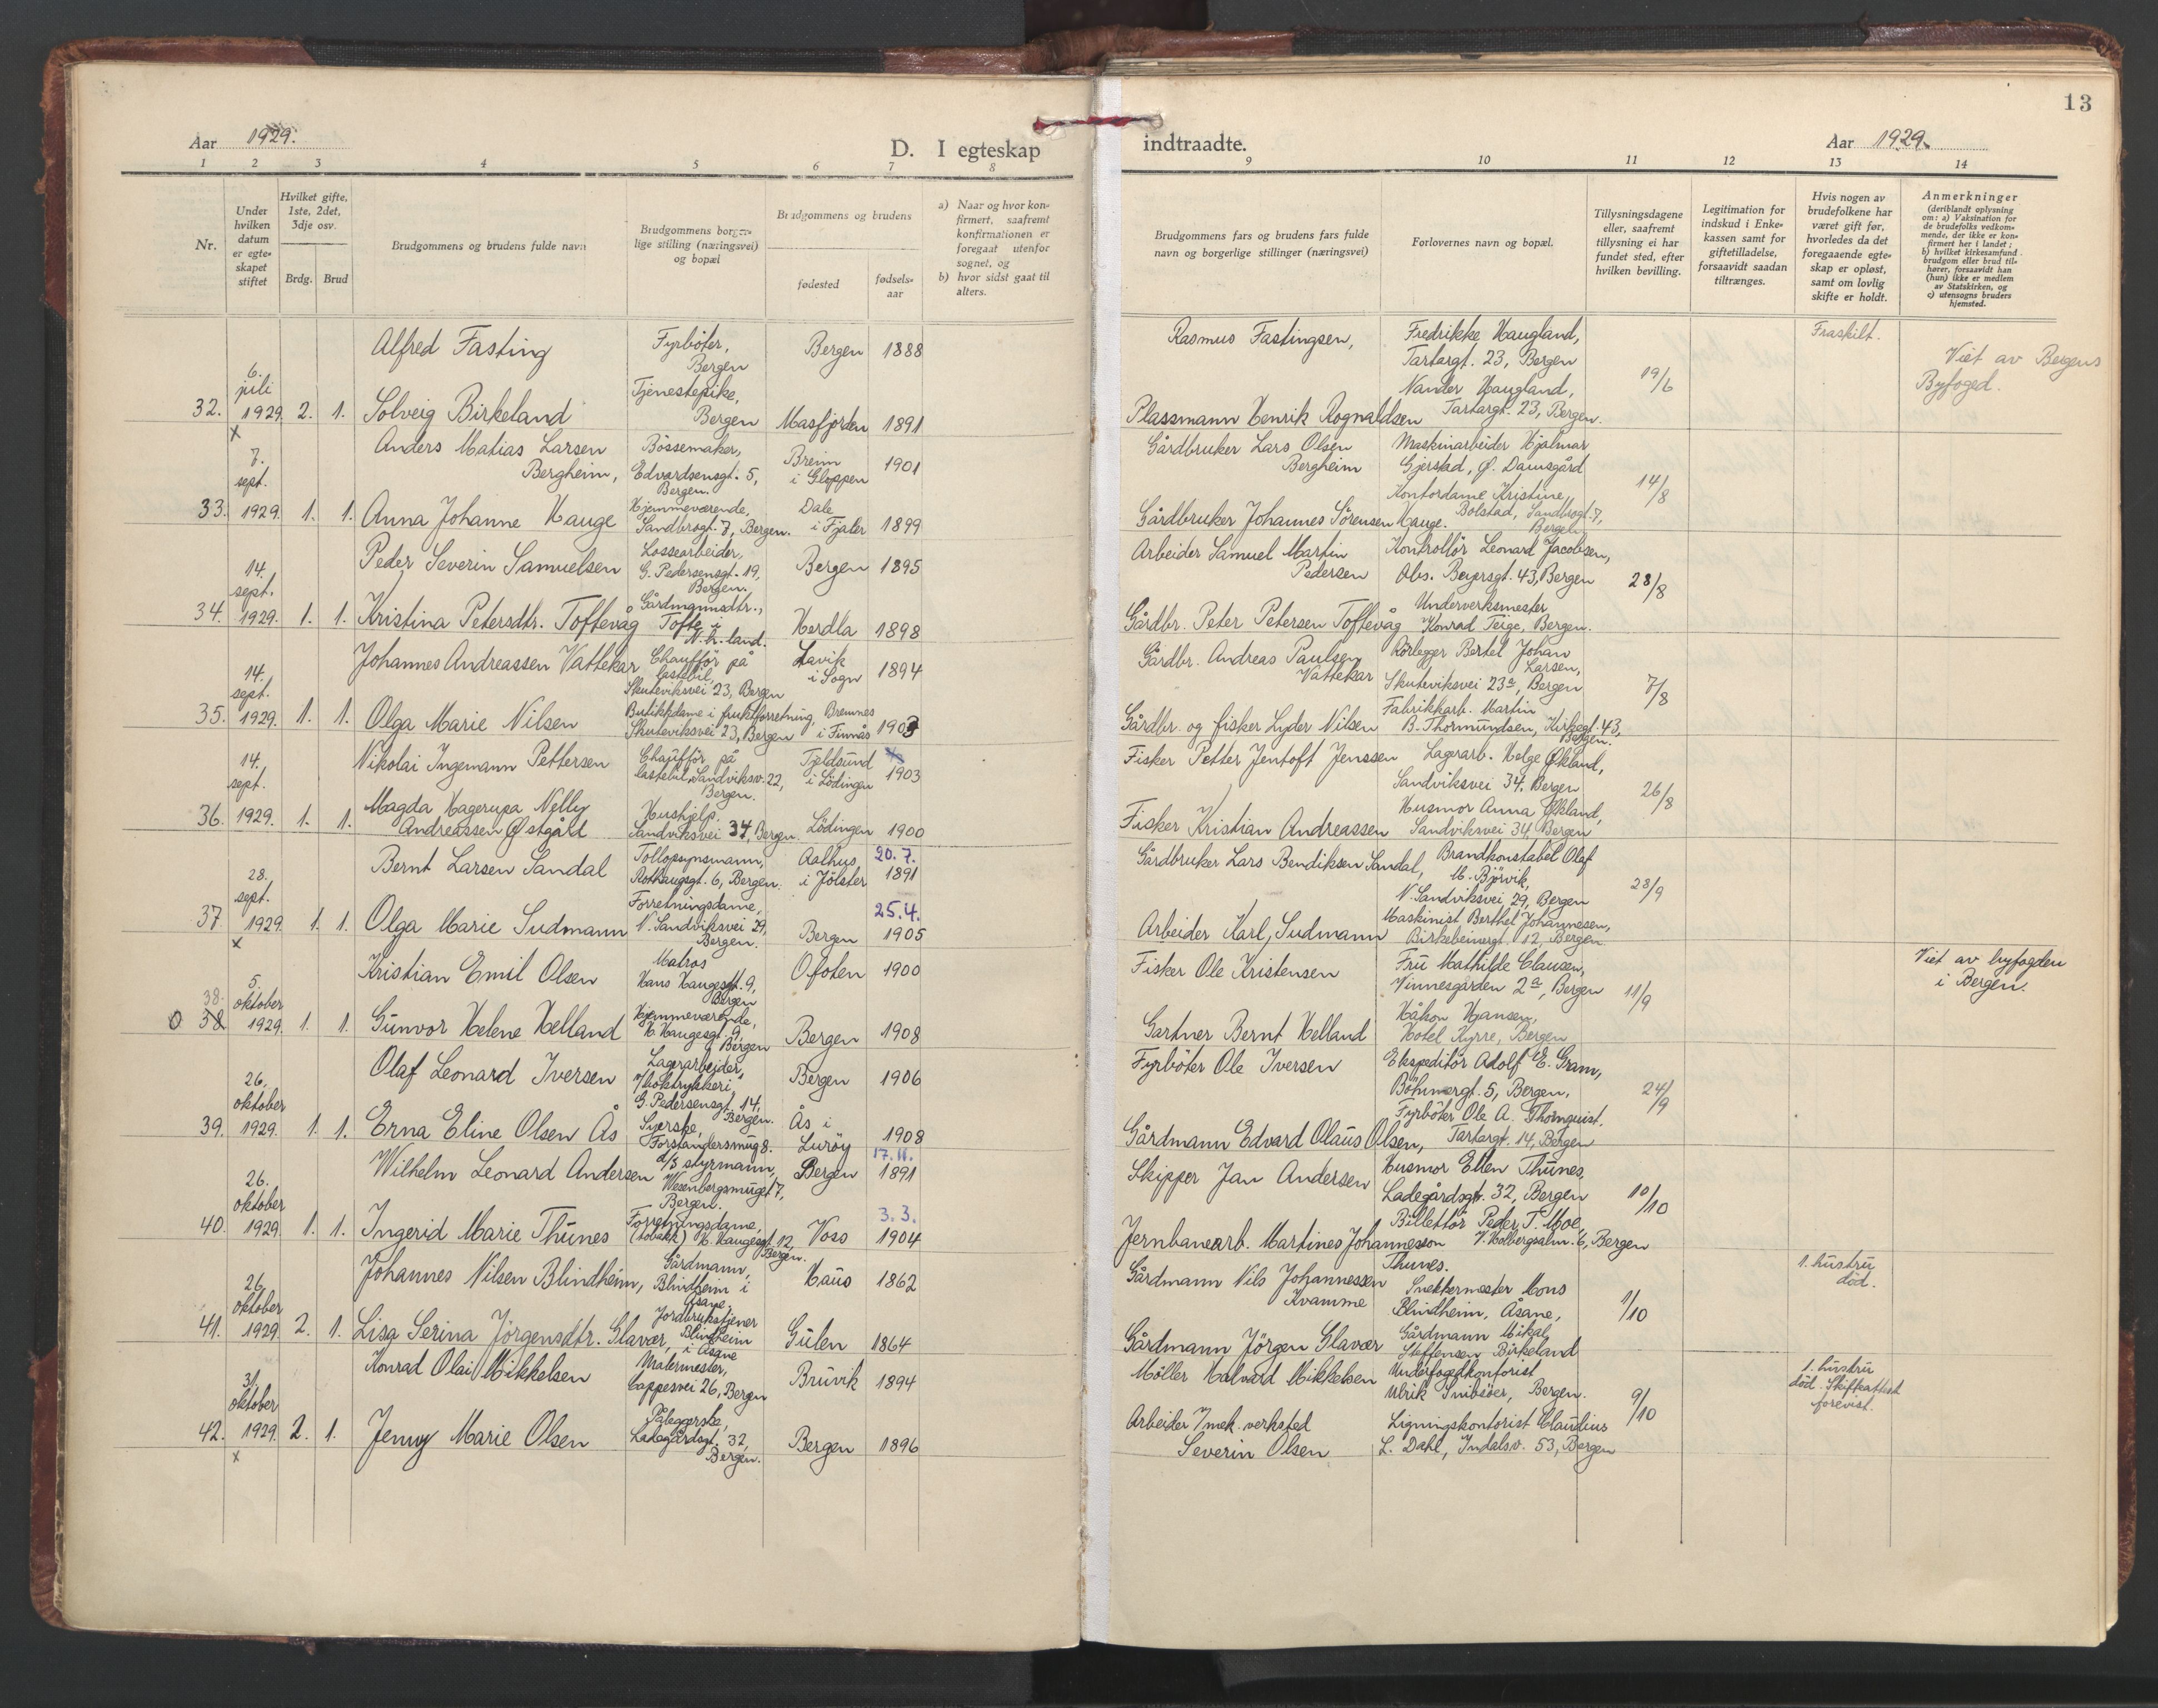 13
Aar 1929.
D. I egteskap indtraadte.
Aar 1929.
1 2 3 4 5 6 7 8 9 10 11 12 13 14
Nr.
Under
hvilken
datum
er egte-
skapet
stiftet
Hvilket gifte,
1ste, 2det,
3dje osv.
Brdg. Brud
Brudgommens og brudens fulde navn
Brudgommens borger-
lige stilling (næringsvei)
og bopæl
Brudgommens og brudens
fødested
fødsels-
aar
a) Naar og hvor kon-
firmert, saafremt
konfirmationen er
foregaat utenfor
sognet, og
b) hvor sidst gaat til
alters.
Brudgommens fars og brudens fars fulde
navn og borgerlige stillinger (næringsvei)
Forlovernes navn og bopæl.
Tillysningsdagene
eller, saafremt
tillysning ei har
fundet sted, efter
hvilken bevilling.
Legitimation for
indskud i Enke-
kassen samt for
giftetilladelse,
forsaavidt saadan
tiltrænges.
Hvis nogen av
brudefolkene har
været gift før,
hvorledes da det
foregaaende egte-
skap er opløst,
samt om lovlig
skifte er holdt.
Anmerkninger
(deriblandt oplysning
om: a) Vaksination for
de brudefolks vedkom-
mende, der ikke er kon-
firmert her i landet;
b) hvilket kirkesamfund
brudgom eller brud til-
hører, forsaavidt han
(hun) ikke er medlem
av Statskirken, og
c) utensogns bruders
hjemsted.
32.
6.
juli
1929.
x
2. 1.
Alfred Fasting
Fyrböter,
Bergen
Bergen 1888
Solveig Birkeland
Tjenestepike,
Bergen
Masfjorden 1891
Rasmus Fastingsen,
Plassmann Henrik Rognaldsen
Fredrikke Haugland,
Tartargt. 23, Bergen
Nander Haugland,
Tartargt. 23, Bergen.
19/6
Fraskilt.
Viet av Bergens
Byfoged.
33.
7.
sept.
1929.
1. 1.
Anders Matias Larsen
Bergheim,
Bössemaker,
Edvardsensgt. 5,
Bergen.
Breim
i Gloppen
1901
Anna Johanne Hauge
Hjemmeværende,
Sandbrogt. 7, Bergen.
Dale
i Fjaler
1899
Gårdbruker Lars Olsen
Bergheim
Gårdbruker Johannes Sörensen Hauge.
Maskinarbeider Hjalmar
Gjerstad, Ø. Damsgård
Kontordame Kristine
Bolstad, Sandbrogt. 7,
Bergen
14/8
34.
14.
sept.
1929.
1. 1.
Peder Severin Samuelsen
Lossearbeider,
G. Pedersensgt. 19,
Bergen.
Bergen 1895
Kristina Petersdtr. Toftevåg
Gårdmannsdtr.,
Tofte i
N.h.land.
Herdla 1898
Arbeider Samuel Martin
Pedersen
Gårdbr. Peter Petersen Toftevåg
Kontrollör Leonard Jacobsen,
Abs. Beyersgt. 43, Bergen
Underverksmester
Konrad Teige, Bergen.
28/8
35.
14.
sept.
1929.
1. 1.
Johannes Andreassen Vattekar
Chaufför på
lastebil,
Skuteviksvei 23, Bergen
Lavik
i Sogn
1894
Olga Marie Nilsen
Butikkdame i fruktforretning,
Skuteviksvei 23, Bergen
Bremnes
i Finnås
1903
Gårdbr. Andreas Paulsen
Vattekar
Gårdbr. og fisker Lyder Nilsen
Rörlegger Bertel Johan
Larsen,
Skuteviksvei 23a, Bergen
Fabrikkarb. Martin
B. Thormundsen, Kirkegt. 43,
Bergen.
7/8
36.
14.
sept.
1929.
1. 1.
Nikolai Ingemann Pettersen
Chaufför på
lastebil, Sandviksv. 22,
Bergen.
Tjeldsund
i Lödingen
1903
Magda Hagerupa Nelly
Andreassen Østgåld
Hushjelp.
Sandviksvei 34, Bergen.
Lödingen 1900
Fisker Petter Jentoft Jenssen
Fisker Kristian Andreassen
Lagerarb. Helge Økland,
Sandviksvei 34, Bergen
Husmor Anna Økland,
Sandviksvei 34, Bergen
26/8
37.
28.
sept.
1929.
x
1. 1.
Bernt Larsen Sandal
Tollopsynsmann,
Rothaugsgt. 6, Bergen.
Aalhus
i Jölster
20.7.
1891
Olga Marie Sudmann
Forretningsdame,
N. Sandviksvei 29,
Bergen.
Bergen
25.4.
1905
Gårdbruker Lars Bendiksen Sandal,
Arbeider Karl Sudmann
Brandkonstabel Olaf
M. Björvik,
N. Sandviksvei 29, Bergen
Maskinist Berthel Johannesen,
Birkebeinergt. 12, Bergen.
28/9
38.
o 38
5.
oktober
1929.
1. 1.
Kristian Emil Olsen
Matros
Hans Haugesgt. 9,
Bergen
Ofoten 1900
Gunvor Helene Helland
Hjemmeværende,
H. Haugesgt. 9,
Bergen
Bergen 1908
Fisker Ole Kristensen
Gartner Bernt Helland
Fru Mathilde Clausen,
Vinnesgården 2a, Bergen
Håkon Hjansen,
Hotel Kyrre, Bergen
11/9
Viet av byfogden
i Bergen.
39.
26.
oktober
1929.
1. 1.
Olaf Leonard Iversen
Lagerarbeider
i/boktrykkeri
G. Pedersensgt. 14,
Bergen.
Bergen 1906
Erna Eline Olsen Ås
Syerske,
Forstandersmug 8.
Ås i
Luröy
1908
Fyrböter Ole Iversen
Gårdmann Edvard Olaus Olsen,
Ekspeditör Adolf E. Gram,
Böhmergt. 5, Bergen,
Fyrböter Ole A. Thornquist,
Tartargt. 14, Bergen
24/9
40.
26.
oktober
1929.
1. 1.
Wilhelm Leonard Andersen
d/s styrmann,
Wesenbergsmuget 7,
Bergen.
Bergen
17.11.
1891
Ingerid Marie Thunes
Forretningsdame,
(tobakk) H. Haugesgt. 12,
Bergen.
Voss
3.3.
1904
Skipper Jan Andersen
Jernbanearb. Martines Johannesson
Thunes.
Husmor Ellen Thunes,
Ladegårdsgt. 32, Bergen
Billettör Peder T. Moe,
V. Holbergsalm. 6, Bergen
10/10
41.
26.
oktober
1929.
2. 1.
Johannes Nilsen Blindheim,
Gårdmann,
Blindheim i
Åsane,
Haus 1862
Lisa Serina Jörgensdtr. Glavær,
Jordbrukstjener
Blindheim
i Åsane
Gulen 1864
Gårdmann Nils Johannessen
Kvamme
Gårdmann Jörgen Glavær
Snekkermester Mons
Blindheim, Åsane,
Gårdmann Mikal
Steffensen Birkeland
1/10
1. hustru
död.
42.
31.
oktober
1929.
x
2. 1.
Konrad Olai Mikkelsen
Malermester,
Cappesvei 26, Bergen
Bruvik 1894
Jenny Marie Olsen
Påleggerske,
Ladegårdsgt. 32,
Bergen.
Bergen 1896
Möller Halvald Mikkelsen
Arbeider i/mek. verksted
Severin Olsen
Underfogedkontorist
Ulrik Snibsöer, Bergen.
Ligningskontorist Claudius
L. Dahl, Indalsv. 53, Bergen
9/10
1. hustru
död. Skifteattest
forevist.